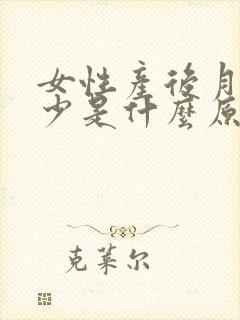 女性產後月
少是什麼原
克萊尔